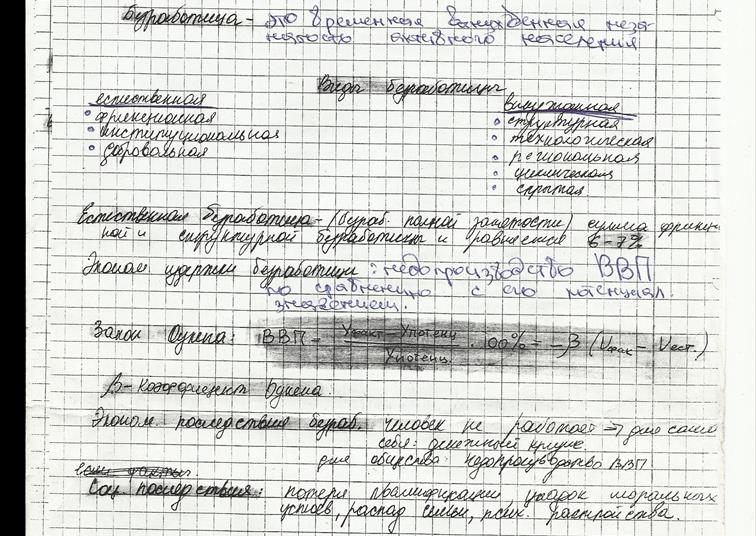 Безработица - это временная вынужденная неза-
нятость активного населения
Виды безработицы
естественная
• фрикционная
• институциональная
• добровальная
вынужденная
• структурная
• технологическая
• региональная
• циклическая
• скрытая
Естественная безработица - (безраб. полной занятости) сумма фрикцион
ной и структурной безработицы и равняется 6-7%
Эконом издержки безработицы: недопроизводство ВВП
по сравнению с его потенциал.
значением.
Закон Оукена: ВВП = Yфакт - Yпотенц / Yпотенц. · 100% = -β (Uфак - Uест.)
β - коэффициент Оукена.
Эконом. последствия безраб. человек не работает => для самого
себя: денежный кризис.
для общества: недопроизводство ВВП
Соц. последствия: потеря квалификации, упадок моральных
устоев, распад семьи, псих. расстройства.